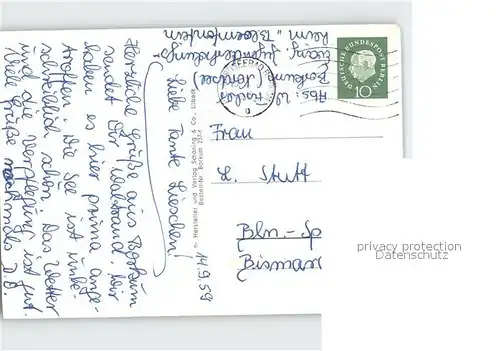 Abs: W. 
Borkum (Nordsee)
evang. Jugenderholungs-
heim „Bloemfontein
DEUTSCHE BUNDESPOST BERLIN
10
Frau
L. Stutt
Bln.-Sp
14.9.59
Liebe Tante Lieschen!
Herzliche Grüße aus Borkum
sendet Dir Waltraud. Wir
haben es hier prima ange-
troffen. Die See ist unbe-
schreiblich schön. Das Wetter
und die Verpflegung ist gut.
Viele Grüße nochmals D.O.
Hersteller und Verlag Schöning & Co., Lübeck
Bestell-Nr. Borkum
privacy protection
Datenschutz